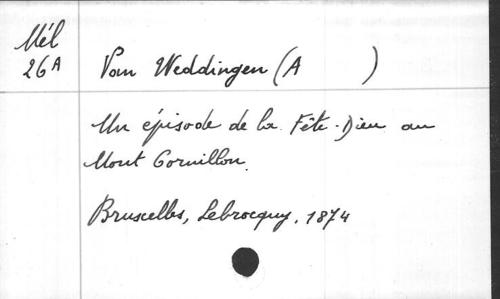 Mél
26A
Van Weddingen (A )
Un épisode de la Fête-Dieu au
Mont Cornillon.
Bruxelles, Lebrocquy, 1874